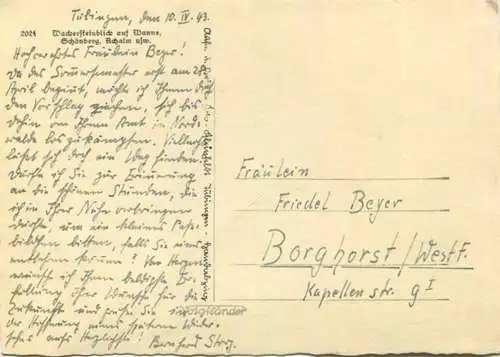 Tübingen, den 10. IV. 43.
2024 Wackersteinblick auf Wanne,
Schönberg, Achalm usw.
Hochverehrtes Fräulein Beyer!
Da das Sommersemester erst am 28.
April beginnt, möchte ich Ihnen
den Vorschlag machen, sich bis
dahin von Ihrem Amt in Nord-
walde loszukämpfen. Vielleicht
lässt sich doch ein Weg finden.
Dürfte ich Sie zur Erinnerung
an die schönen Stunden, die
ich in Ihrer Nähe verbringen
durfte, um ein kleines Pass-
bildchen bitten, falls Sie eines
entbehren können? Von Herzen
wünsche ich Ihnen baldigste Er-
füllung Ihrer Wünsche für die
Zukunft und grüße Sie in
der Hoffnung eines späteren Wieder-
sehens aufs herzlichste! Bernhard
Tübingen
Fräulein
Friedel Beyer
Borghorst/Westf.
Kapellenstr. 9 I
Voigtländer